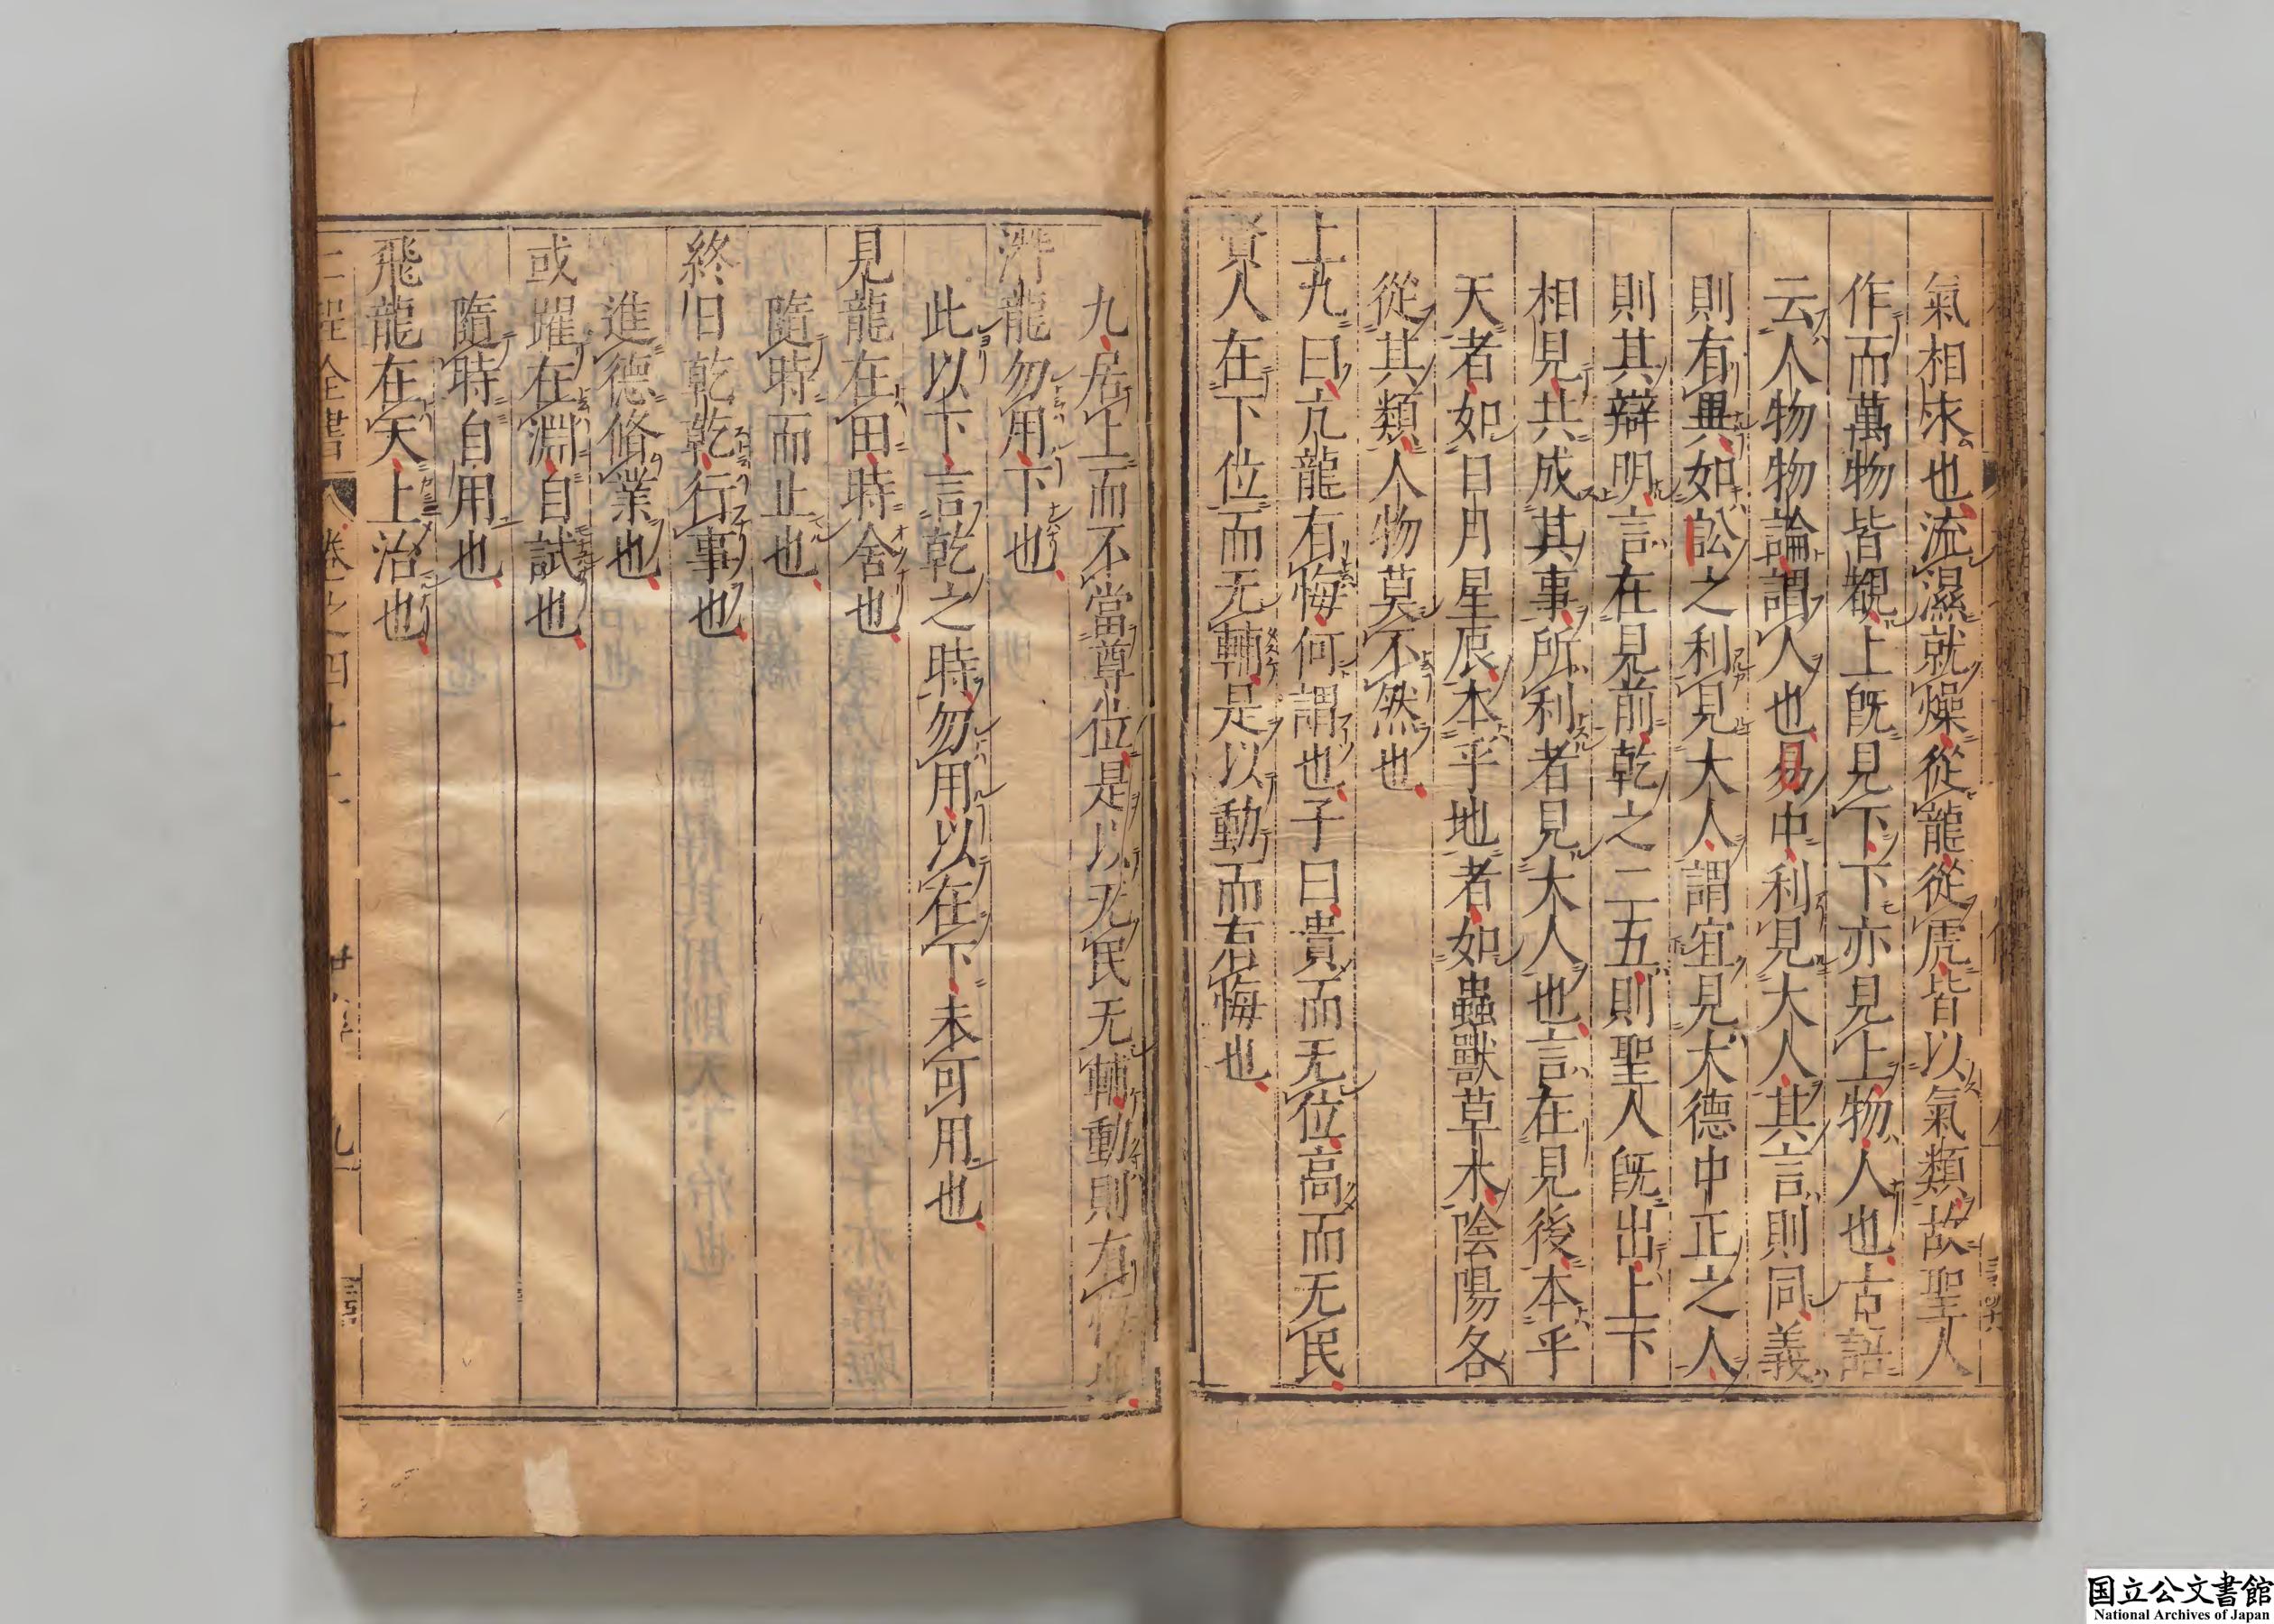 氣相求也流濕就燥從龍從虎皆以氣類故聖人
作而萬物皆覩上旣見下下亦見上物人也古語
云人物物論謂人也易中利見大人其言則同義
則有異如訟之利見大人謂宜見大德中正之人
則其辯明言在見前乾之二五則聖人旣出上下
相見共成其事所利者見大人也言在見後本乎
天者如日月星辰本乎地者如蟲獸草木陰陽各
從其類人物莫不然也
上九曰亢龍有悔何謂也子曰貴而无位高而无民
賢人在下位而无輔是以動而有悔也
九居上而不當尊位是以无民无輔動則有悔也
潛龍勿用下也
此以下言乾之時勿用以在下未可用也
見龍在田時舍也
隨時而止也
終日乾乾行事也
進德脩業也
或躍在淵自試也
隨時自用也
飛龍在天上治也
二程全書 卷之四十一 九
国立公文書館
National Archives of Japan